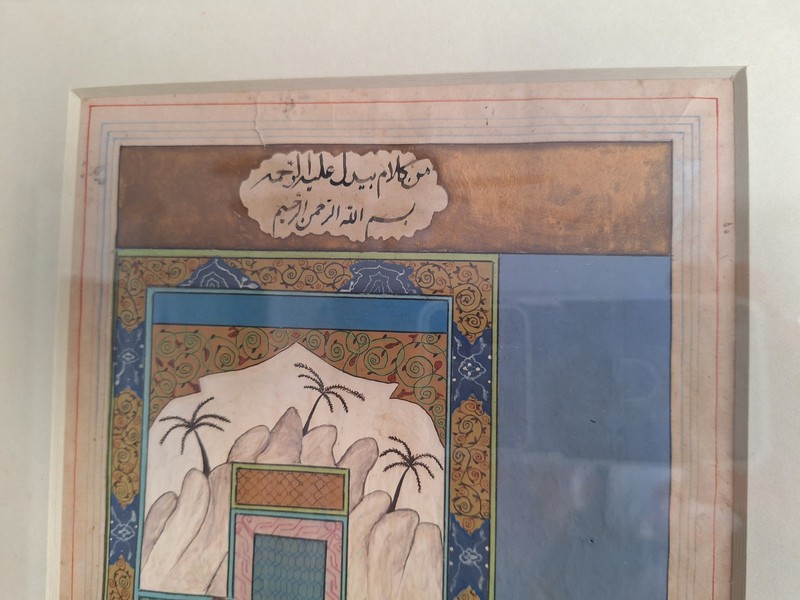 من کلام بیدل علیه الرّحمه
بسم الله الرّحمن الرّحیم